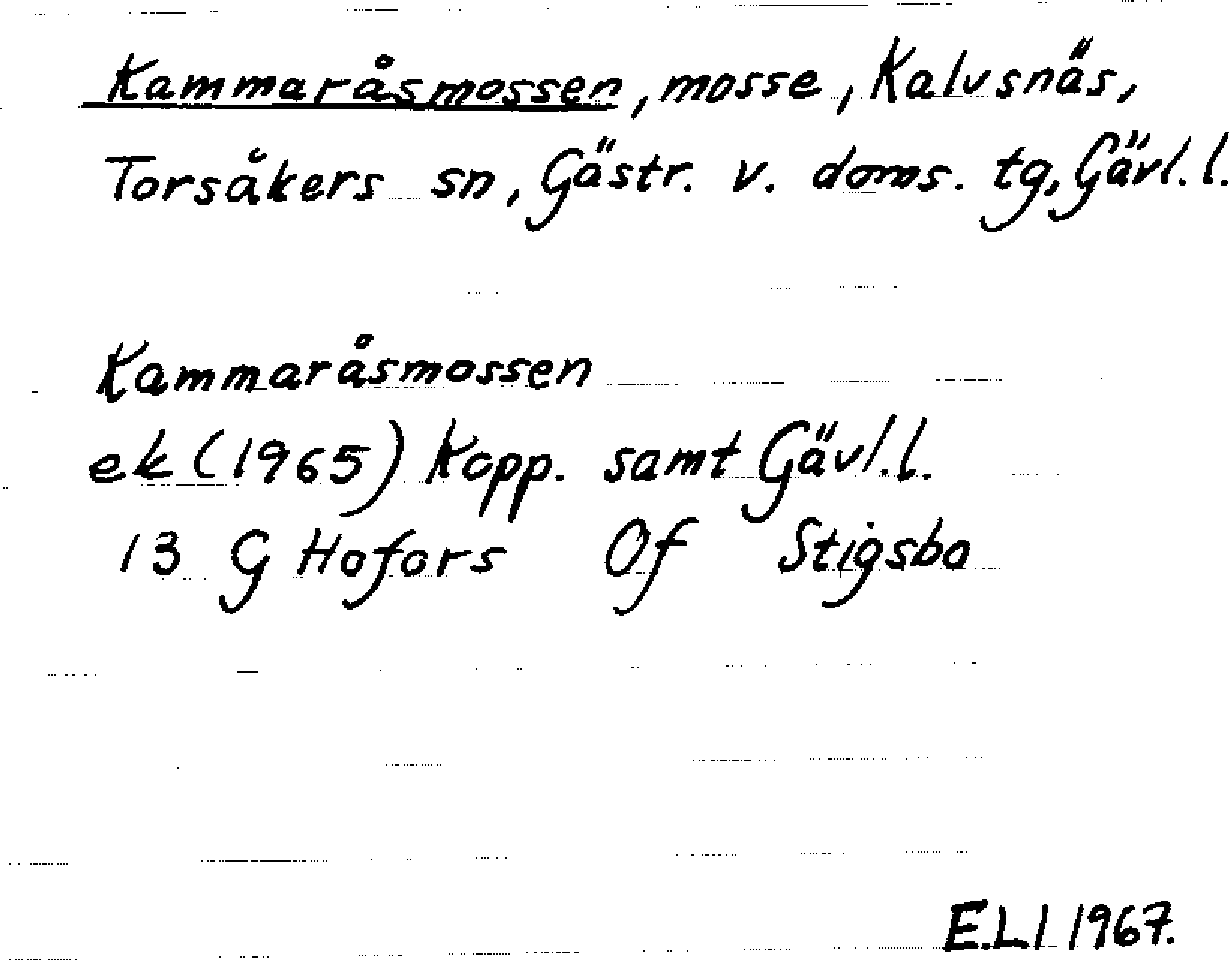 Kammaråsmossen, mosse, Kalvsnäs,
Torsåkers sn, Gästr. v. doms. tg, Gävl. l.
Kammaråsmossen
ek (1965) Kopp. samt Gävl. l.
13 G Hofors Of Stigsbo
E.L.I 1967.